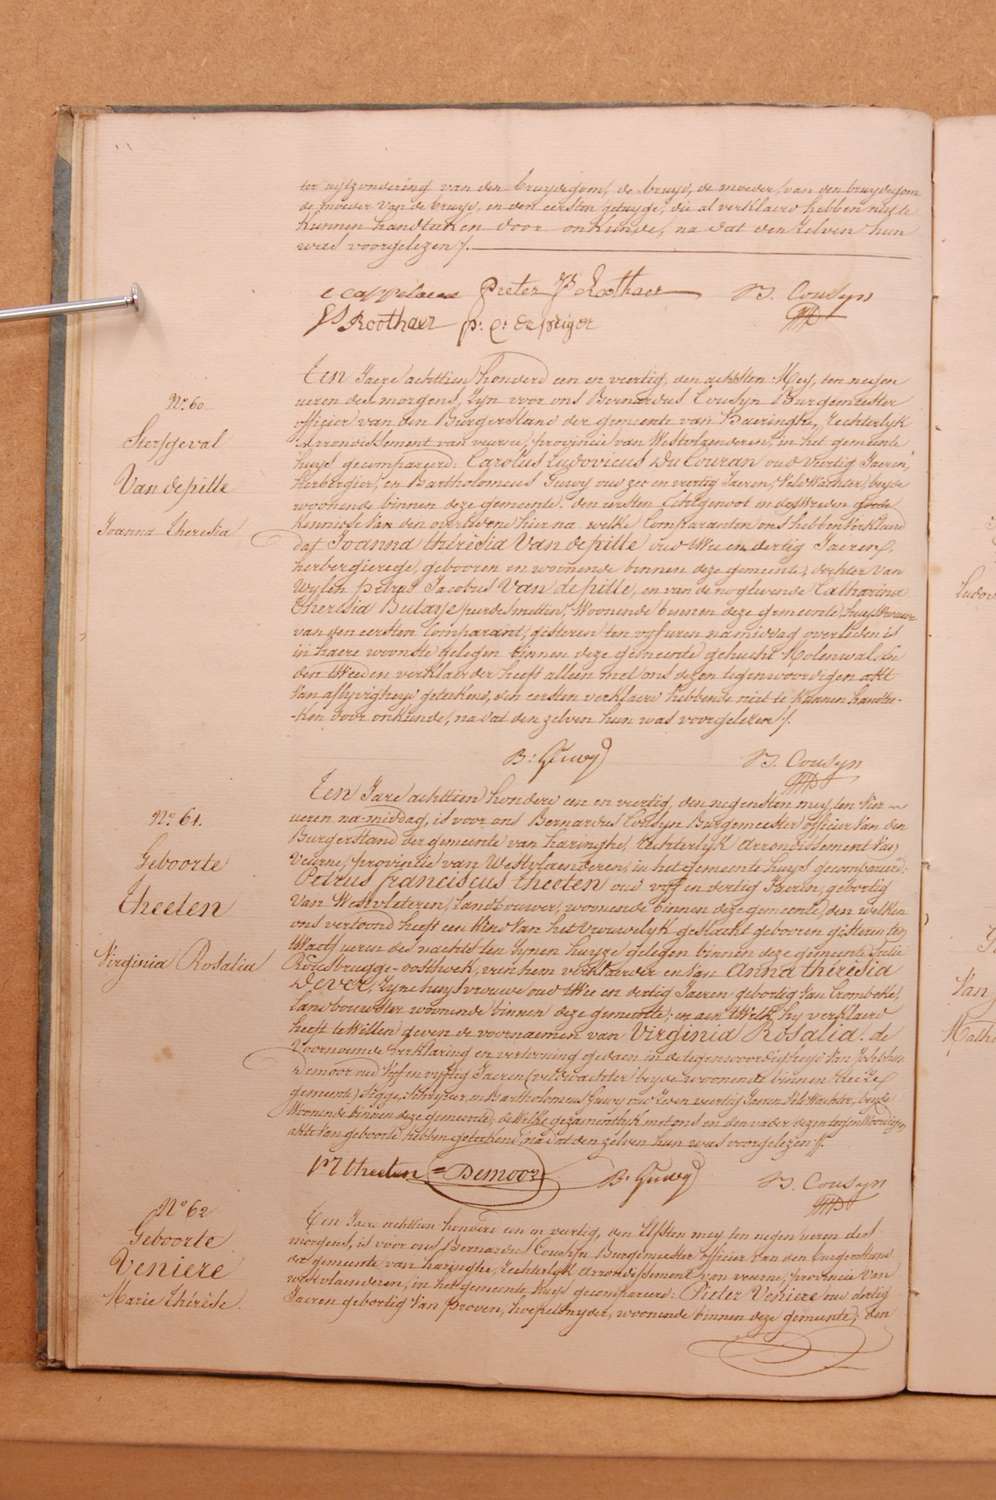 ter uytzondering van den bruydegom, de bruyd, de moeder van den bruydegom
de moeder van de bruyd, en den eersten getuyge, die al verklaerd hebben niet te
kunnen handteeken door onkunde, na dat den zelven hun
was voorgelezen /.
C Cappelaere Pieter J B Roothaer B. Cousyn
J S Roothaer p: c: de Priger
N.o 60
Sterfgeval
Van de pitte
Joanna Theresia
Ten Jaere achttien honderd een en viertig, den achtsten Mey, ten negen
ueren des morgens, zyn voor ons Bernardus Cousyn Burgemeester
officier van den Burgerstand der gemeente van Haeringhe, Rechterlyk
Arrondissement van veurne, provincie van Westvlaenderen, in het gemeente
huys gecompareerd: Carolus Ludovicus Du Couran oud viertig Jaeren,
Herbergier, en Bartholomeus Guwy oud zes en viertig Jaeren, Veldwachter, beyde
woonende binnen deze gemeente. den eersten Echtgenoot en den tweeden goede
kennisse van den overledene hier na. welke Comparanten ons hebben verklaerd
dat Joanna Thérésia Van de pitte oud twee en dertig Jaeren,
herbergierege, gebooren en woonende binnen deze gemeente, dochter van
wylen Petrus Jacobus Van de pitte, en van de nog levende Catharina
Theresia Butaye, woonende binnen deze gemeente, huysvrouwe
van den eersten Comparant, gisteren ten vyf uren namiddag overleden is
in haere woonste gelegen binnen deze gemeente gehucht Molenwal. en
den tweeden verklaerder heeft alleen met ons dezen tegenwoordigen akt
van aflyvigheyd geteekend, den eersten verklaerd hebbende niet te kunnen handtee-
-ken door onkunde, na dat den zelven hun was voorgelezen /.
B: Guwy B. Cousyn
N.o 61.
Geboorte
Theeten
Virginia Rosalia
Ten Jare achttien honderd een en viertig, den negensten mey, ten vier
ueren na-middag, is voor ons Bernardus Cousyn Burgemeester officier van den
Burgerstand der gemeente van haringhe, Rechterlyk Arrondissement van
Veurne, provincie van Westvlaenderen, in het gemeente huys gecompareerd:
Petrus Franciscus Theeten oud vyf en dertig Jaeren, geboortig
van Westvleteren, landbouwer, woonende binnen deze gemeente, den welken
ons vertoond heeft een kind van het vrouwelyk geslacht gebooren gisteren ten
twaelf ueren des nachts ten zynen huyze gelegen binnen deze gemeente
Rousbrugge-oosthoek, van hem verklaerder en van Anna Thérésia
Dever, zyne huysvrouwe oud twee en dertig Jaeren geboortig van Crombeke,
landbouwster woonende binnen deze gemeente; en aen welk hy verklaerd
heeft te willen geven de voornaemen van Virginia Rosalia. de
voornoemde verklaring en vertooning gedaen in de tegenwoordigheyd van
Demoor oud vyf en vyftig Jaeren
gemeente, en Bartholomeus Guwy oud zeven viertig Jaeren Veld Wachter, beyde
woonende binnen deze gemeente; de welke gezamentlyk met ons en den vader dezen tegenwoordigen
akt van geboorte hebben geteekend, na dat den zelven hun was voorgelezen //.
P F Theeten = Demoor B. Guwy B. Cousyn
N.o 62
Geboorte
Veniere
Marie Thérèse.
Ten Jaere achttien honderd een en viertig, den Elfsten mey ten negen ueren des
morgens, is voor ons Bernardus Cousyn Burgemeester officier van den burgerstand
der gemeente van haringhe, Rechterlyk Arrondissement van veurne, provincie van
westvlaenderen, in het gemeente huys gecompareerd: Pieter Veniere oud dertig
Jaeren geboortig van Proven, hoepelsnyder, woonende binnen deze gemeente, den